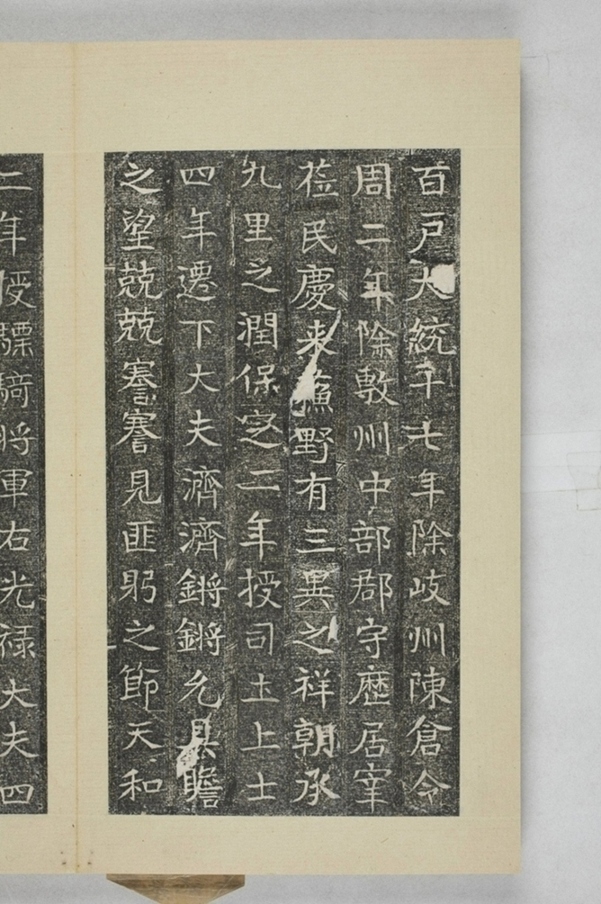 百戶大統十七年除岐州陳倉令
周二年除敷州中部郡守歷居宰
莅民慶来蕪野有三異之祥朝承
九里之潤保定二年授司土上士
四年遷下大夫濟濟鏘鏘允具瞻
之望兢兢謇謇見匪躬之節天和
二年授驃騎將軍右光禄大夫四